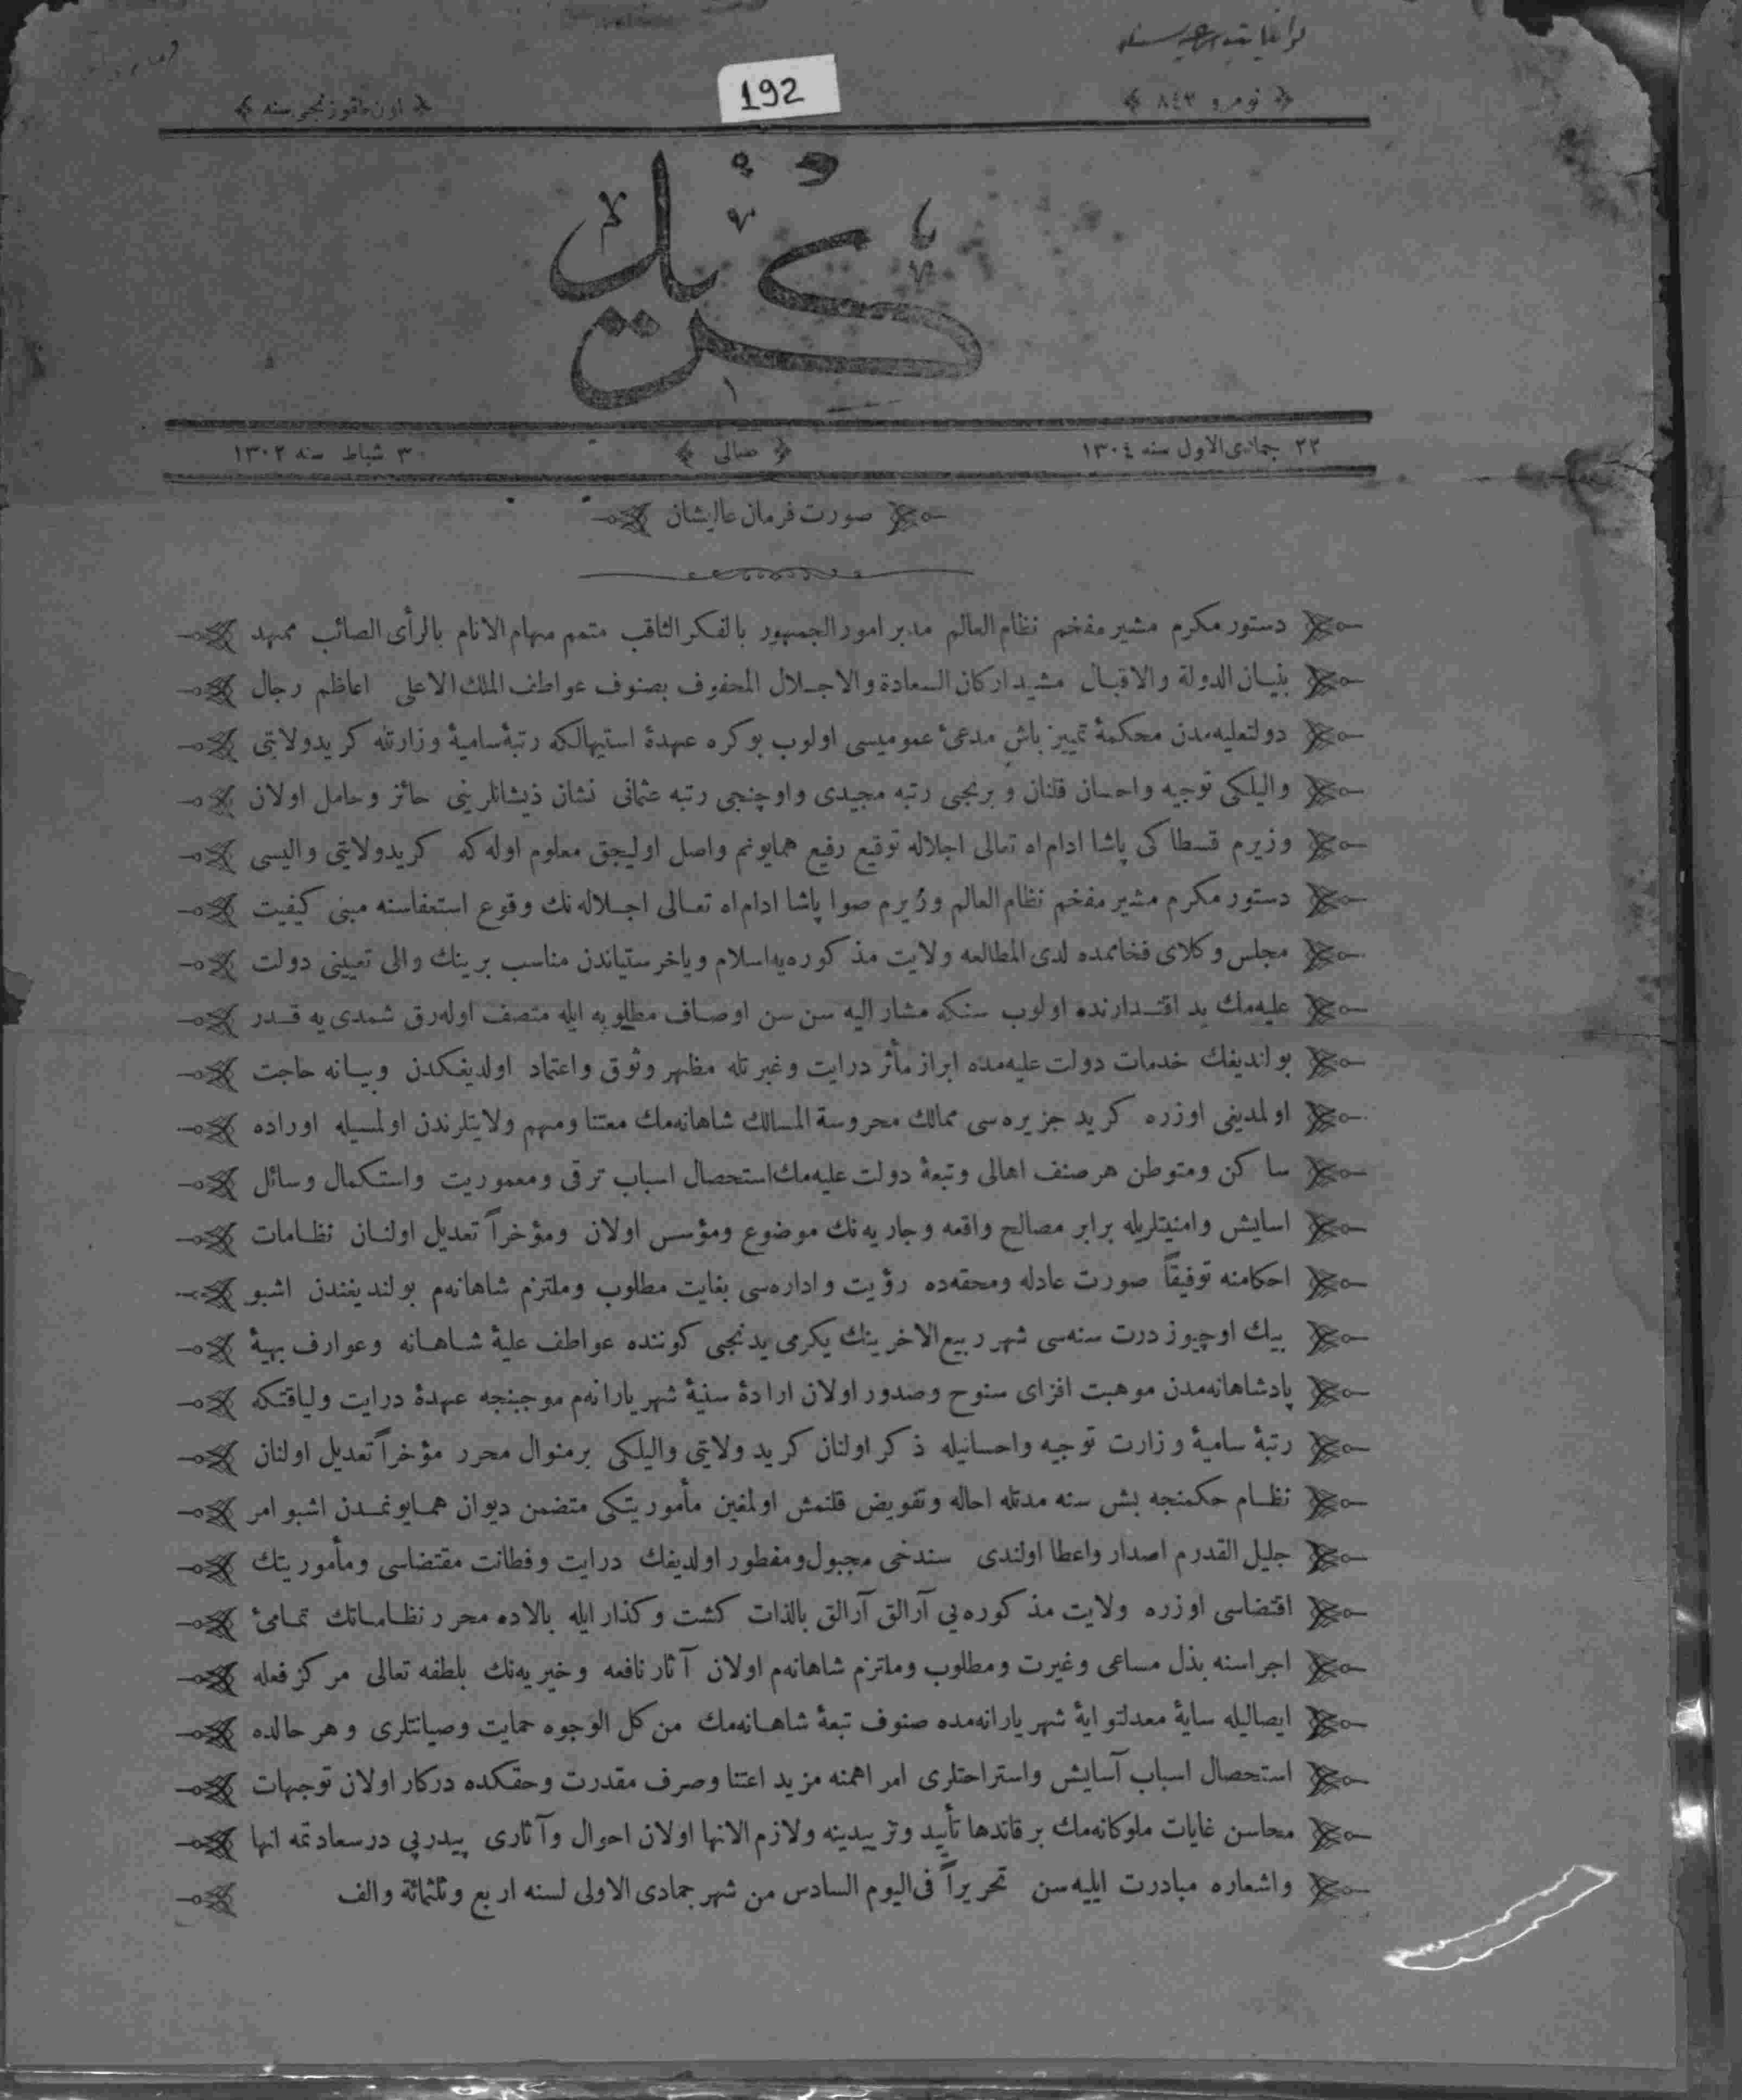 192
نومرو ٨٤٣
اون طقوزنجی سنه
كريد
٢٢ جماذی‌الاول سنه ١٣٠٤
صالی
٣ شباط سنه ١٣٠٢
صورت فرمان عالیشان
دستور مكرم مشیر مفخم نظام العالم مدبر امور الجمهور بالفكر الثاقب متمم مهام الانام بالرأی الصائب ممهد
بنیان الدولة والاقبال مشید اركان السعادة والاجلال المحفوف بصنوف عواطف الملك الاعلی اعاظم رجال
دولتعلیه‌مدن محكمۀ تمییز باش مدعیٔ عمومیسی اولوب بوكره عهدۀ استیهالكه رتبۀ سامیۀ وزارتله كرید ولایتی
والیلكی توجیه واحسان قلنان و برنجی رتبه مجیدی واوچنجی رتبه عثمانی نشان ذیشانلرینی حائز وحامل اولان
وزیرم قسطاكی پاشا ادام‌اه تعالی اجلاله توقیع رفیع همایونم واصل اولیجق معلوم اوله كه كرید ولایتی والیسی
دستور مكرم مشیر مفخم نظام العالم وزیرم صوا پاشا ادام‌اه تعالی اجلاله نك وقوع استعفاسنه مبنی كیفیت
مجلس وكلای فخاممده لدی المطالعه ولایت مذكوره‌یه اسلام ویاخرستیاندن مناسب برینك والی تعیینی دولت
علیه‌مك ید اقتدارنده اولوب سنكه مشار الیه سن سن اوصاف مطلوبه ایله متصف اوله‌رق شمدی یه قدر
بولندیغك خدمات دولت علیه‌مده ابراز مأثر درایت وغیرتله مظهر وثوق واعتماد اولدیغكدن وبیانه حاجت
اولمدیغی اوزره كرید جزیره‌سی ممالك محروسة المسالك شاهانه‌مك معتنا ومهم ولایتلرندن اولمسیله اوراده
ساكن ومتوطن هر صنف اهالی وتبعۀ دولت علیه‌مك استحصال اسباب ترقی ومعموریت واستكمال وسائل
اسایش وامنیتلریله برابر مصالح واقعه وجاریه‌نك موضوع ومؤسس اولان ومؤخراً تعدیل اولنان نظامات
احكامنه توفیقاً صورت عادله ومحقه‌ده رؤیت واداره‌سی بغایت مطلوب وملتزم شاهانه‌م بولندیغندن اشبو
بیك اوچیوز درت سنه‌سی شهر ربیع الاخرینك یكرمی یدنجی كوننده عواطف علیۀ شاهانه وعوارف بهیۀ
پادشاهانه‌مدن موهبت افزای سنوح وصدور اولان ارادۀ سنیۀ شهریارانه‌م موجبنجه عهدۀ درایت ولیاقتكه
رتبۀ سامیۀ وزارت توجیه واحسانیله ذكر اولنان كرید ولایتی والیلكی برمنوال محرر مؤخراً تعدیل اولنان
نظام حكمنجه بش سنه مدتله احاله وتفویض قلنمش اولمغین مأموریتكی متضمن دیوان همایونمدن اشبو امر
جلیل القدرم اصدار واعطا اولندی سندخی مجبول ومفطور اولدیغك درایت وفطانت مقتضاسی ومأموریتك
اقتضاسی اوزره ولایت مذكوره‌یی آرالق آرالق بالذات كشت وكذار ایله بالاده محرر نظاماتك تمامیٔ
اجراسنه بذل مساعی وغیرت ومطلوب وملتزم شاهانه‌م اولان آثار نافعه وخیریه‌نك بلطفه تعالی مركز فعله
ایصالیله سایۀ معدلتوایۀ شهریارانه‌مده صنوف تبعۀ شاهانه‌مك من كل الوجوه حمایت وصیانتلری وهر حالده
استحصال اسباب آسایش واستراحتلری امر اهمنه مزید اعتنا وصرف مقدرت وحقكده دركار اولان توجهات
محاسن غایات ملوكانه‌مك برقاتدها تأیید وتزییدینه ولازم الانها اولان احوال وآثاری پیدرپی درسعادتمه انها
واشعاره مبادرت ایلیه‌سن تحریراً فی الیوم السادس من شهر جمادی الاولی لسنه اربع وثلثمائة والف